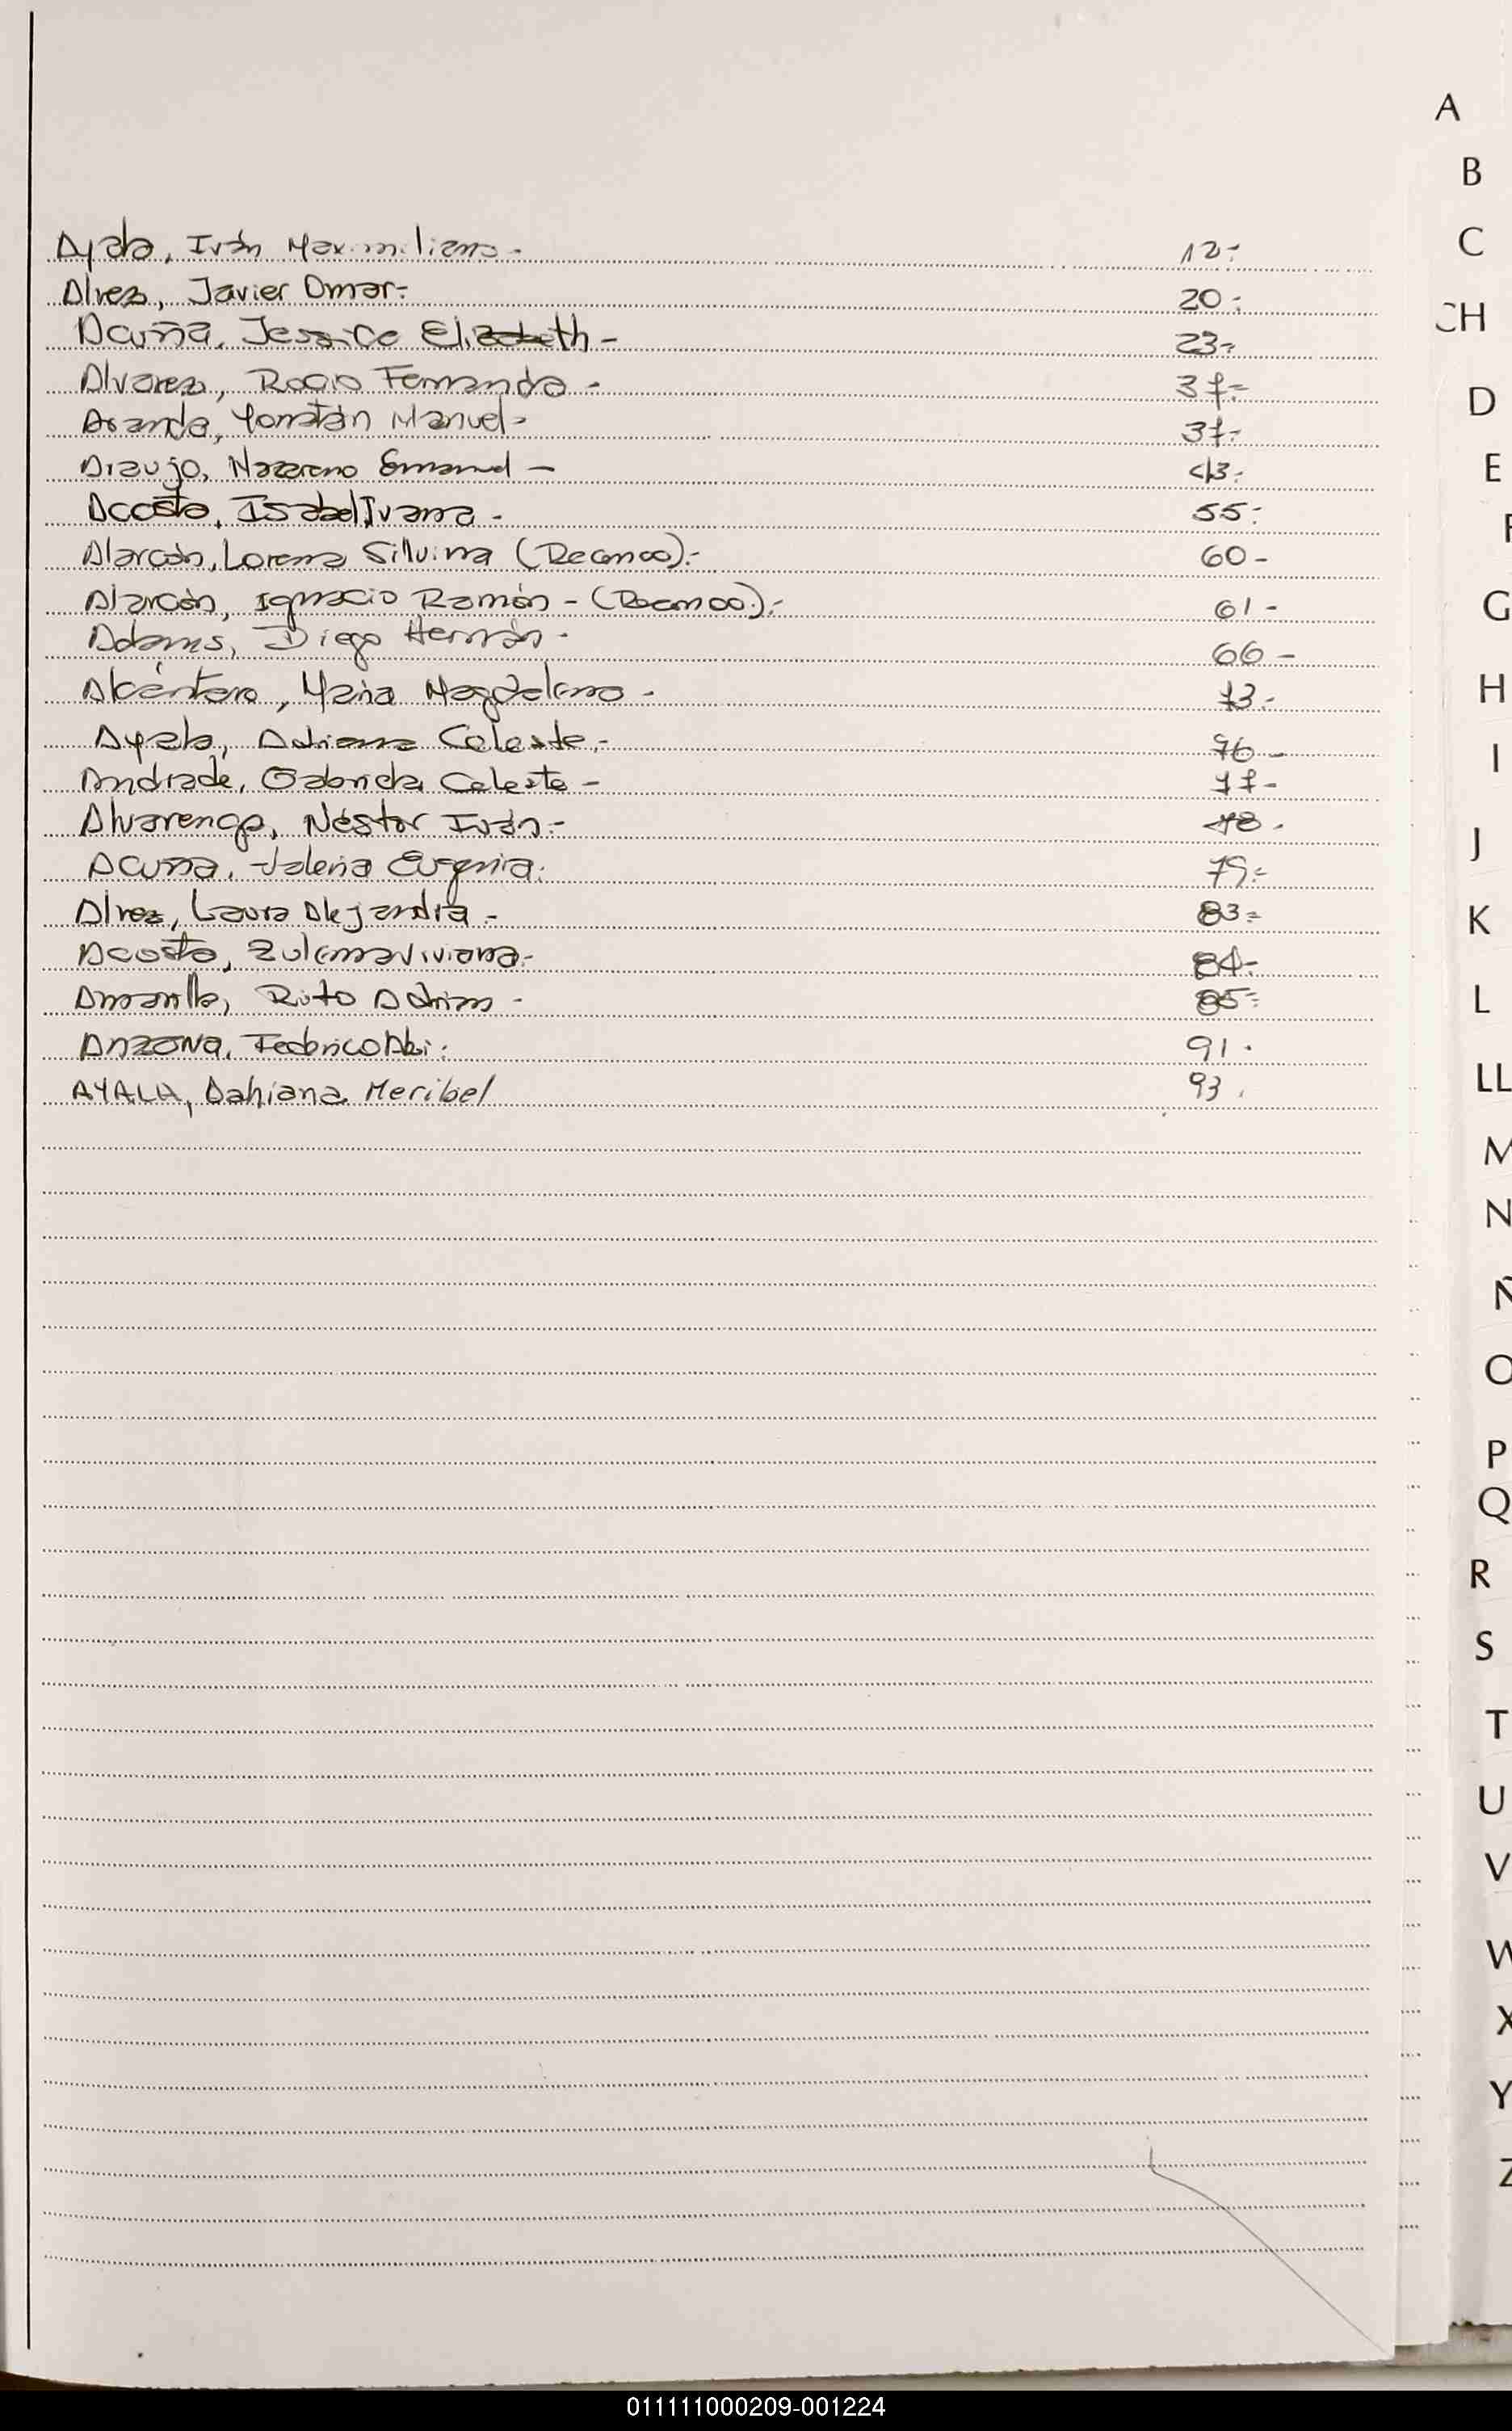 Ayala, Iván Maximiliano.- 12:-
Alvez, Javier Omar:- 20:-
Acuña, Jessica Elizabeth- 23-
Alvarez, Rocio Fernanda- 37-
Aranda, Yonatán Manuel- 37-
Araujo, Nazareno Emanuel- 43-
Acosta, Isabel Ivana- 55:-
Alarcón, Lorena Silvina (Reconoc):- 60-
Alarcón, Ignacio Ramón- (Reconoc):- 61-
Adams, Diego Hernán- 66-
Alcántara, María Magdalena- 73-
Ayala, Adriana Celeste.- 76-
Andrade, Gabriela Celeste- 77-
Alvarenga, Néstor Iván- 78.
Acuña, Valeria Eugenia: 79:-
Alvez, Laura Alejandra- 83-
Acosta, Zulema Viviana- 84-
Amarilla, Rita 85-
91.
AYALA, Dahiana Meribel 93.
A
B
C
CH
D
E
F
G
H
I
J
K
L
LL
M
N
Ñ
O
P
Q
R
S
T
U
V
W
X
Y
Z
011111000209-001224